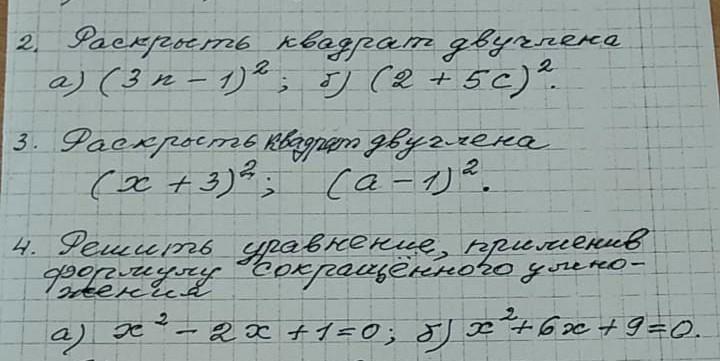 2. Раскрыть квадрат двучлена
а) (3n - 1)²; б) (2 + 5с)².
3. Раскрыть квадрат двучлена
(x + 3)²; (a - 1)².
4. Решить уравнение, применив
формулу сокращённого умно-
жения
а) x² - 2x + 1 = 0; б) x² + 6x + 9 = 0.